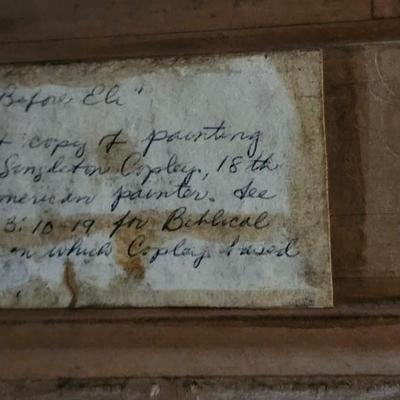 Before Eli"
copy of painting
Singleton Copley, 18th
merican painter. See
3:10-19 for Biblical
on which Copley based